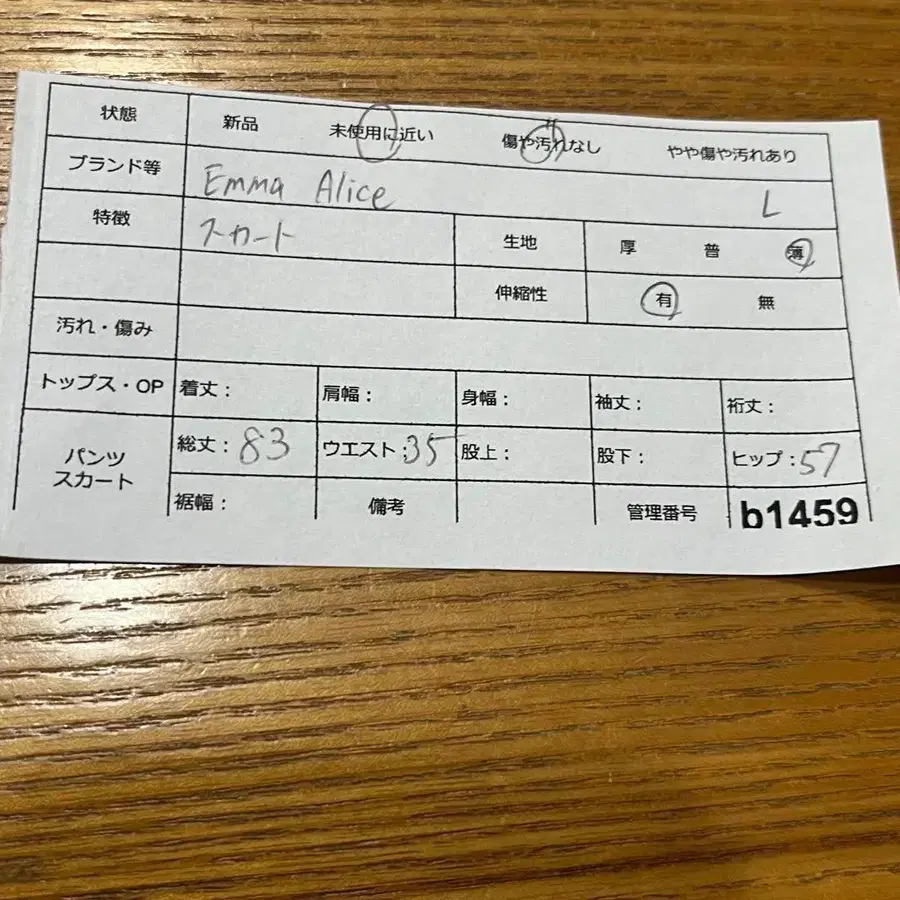 状態 新品 未使用に近い 傷や汚れなし やや傷や汚れあり
ブランド等 Emma Alice L
特徴 スカート 生地 厚 普 薄
伸縮性 有 無
汚れ・傷み
トップス・OP 着丈: 肩幅: 身幅: 袖丈: 裄丈:
パンツ スカート 総丈:83 ウエスト:35 股上: 股下: ヒップ:57
裾幅: 備考 管理番号 b1459